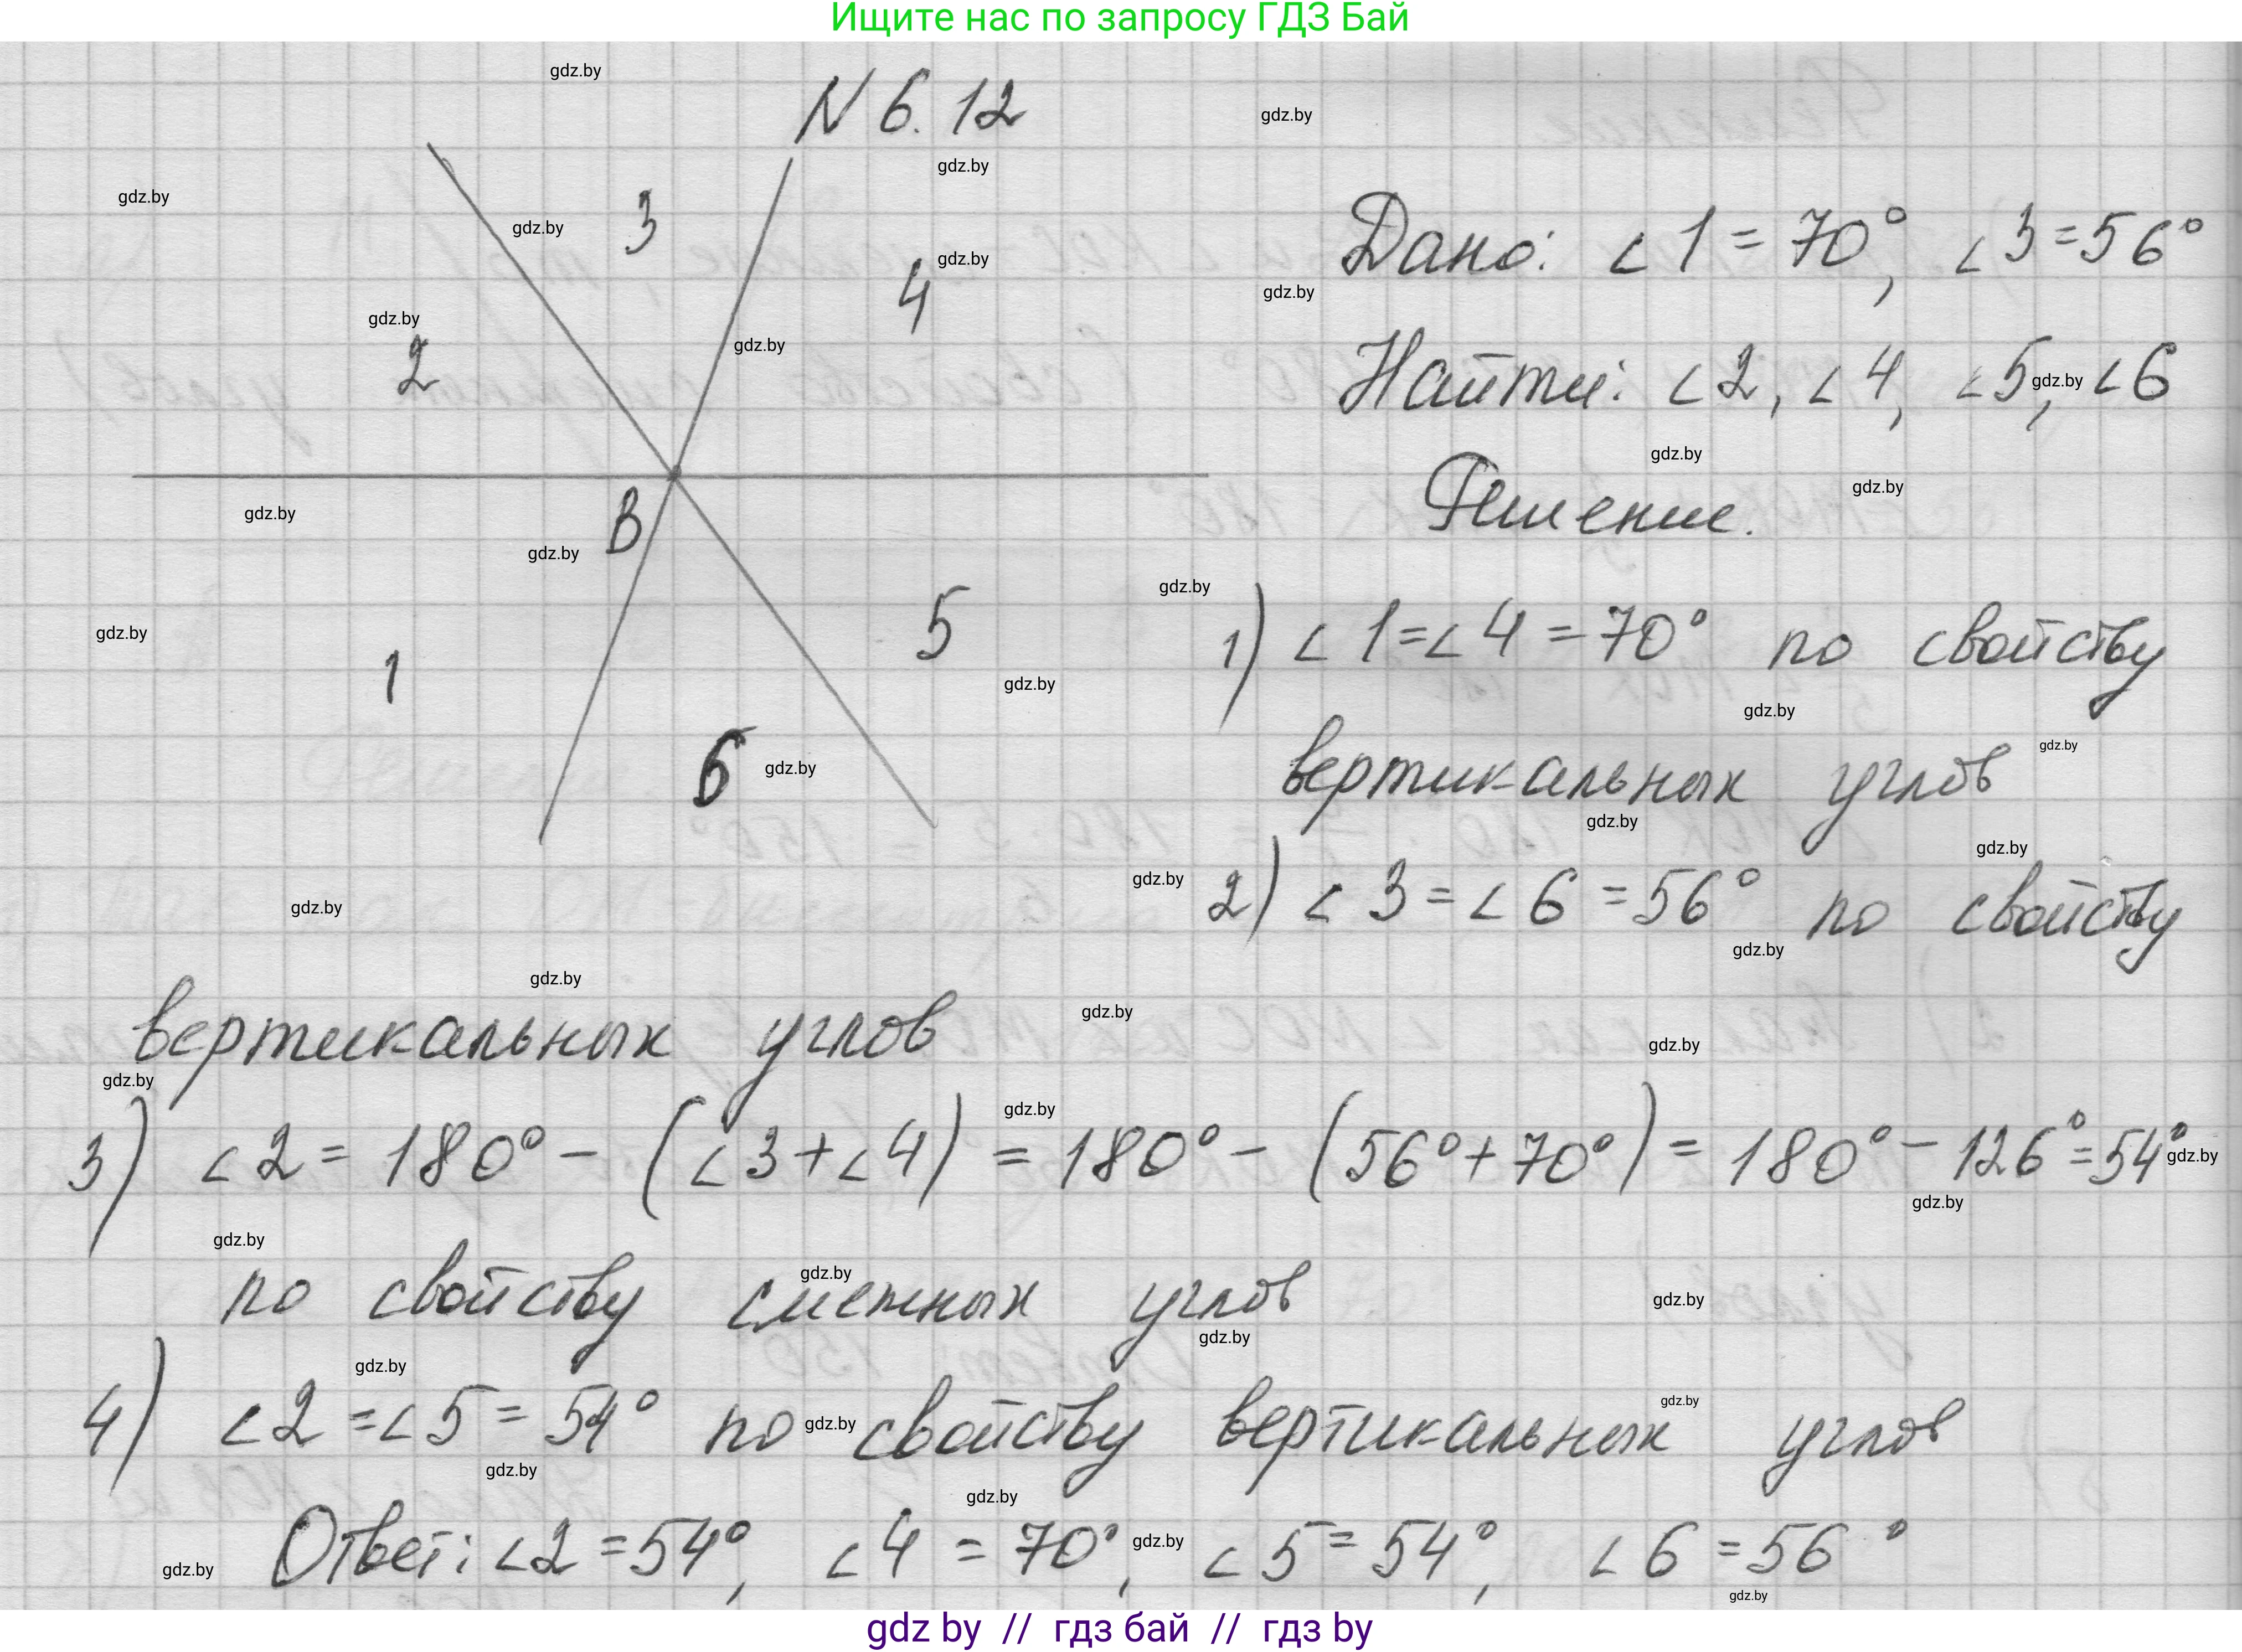 Ищите нас по запросу ГДЗ Бай
N 6. 12
3
4
2
B
1
5
6
Дано: ∠1 = 70°, ∠3 = 56°
Найти: ∠2, ∠4, ∠5, ∠6
Решение.
1) ∠1 = ∠4 = 70° по свойству
вертикальных углов
2) ∠3 = ∠6 = 56° по свойству
вертикальных углов
3) ∠2 = 180° – (∠3 + ∠4) = 180° – (56° + 70°) = 180° – 126° = 54°
по свойству смежных углов
4) ∠2 = ∠5 = 54° по свойству вертикальных углов
Ответ: ∠2 = 54°, ∠4 = 70°, ∠5 = 54°, ∠6 = 56°
gdz.by
gdz by // гдз бай // гдз by